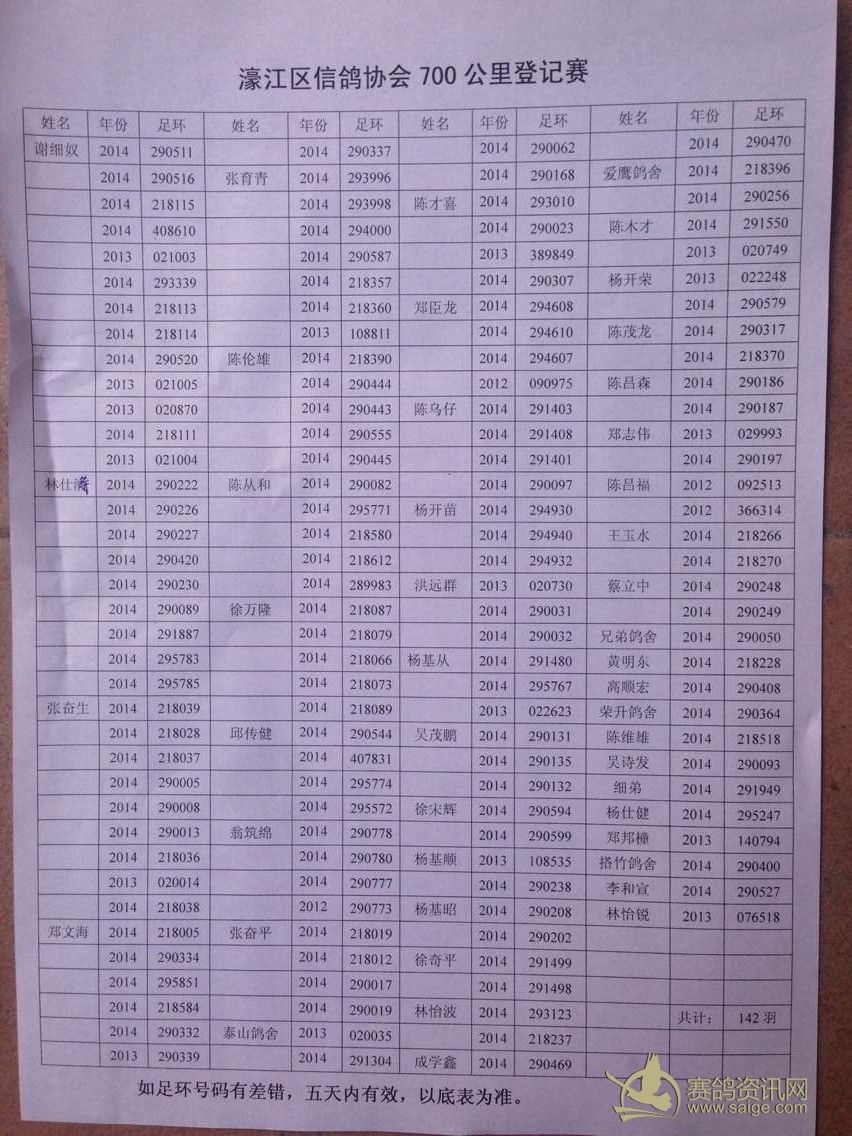 濠江区信鸽协会 700 公里登记赛
姓名 年份 足环 姓名 年份 足环 姓名 年份 足环 姓名 年份 足环
谢细奴 2014 290511 2014 290337 2014 290062 2014 290470
2014 290516 张育青 2014 293996 2014 290168 爱鹰鸽舍 2014 218396
2014 218115 2014 293998 陈才喜 2014 293010 2014 290256
2014 408610 2014 294000 2014 290023 陈木才 2014 291550
2013 021003 2014 290587 2013 389849 2013 020749
2014 293339 2014 218357 2014 290307 杨开荣 2013 022248
2014 218113 2014 218360 郑臣龙 2014 294608 2014 290579
2014 218114 2013 108811 2014 294610 陈茂龙 2014 290317
2014 290520 陈伦雄 2014 218390 2014 294607 2014 218370
2013 021005 2014 290444 2012 090975 陈昌森 2014 290186
2013 020870 2014 290443 陈乌仔 2014 291403 2014 290187
2014 218111 2014 290555 2014 291408 郑志伟 2013 029993
2013 021004 2014 290445 2014 291401 2014 290197
林仕 2014 290222 陈从和 2014 290082 2014 290097 陈昌福 2012 092513
2014 290226 2014 295771 杨开苗 2014 294930 2012 366314
2014 290227 2014 218580 2014 294940 王玉水 2014 218266
2014 290420 2014 218612 2014 294932 2014 218270
2014 290230 2014 289983 洪远群 2013 020730 蔡立中 2014 290248
2014 290089 徐万隆 2014 218087 2014 290031 2014 290249
2014 291887 2014 218079 2014 290032 兄弟鸽舍 2014 290050
2014 295783 2014 218066 杨基从 2014 291480 黄明东 2014 218228
2014 295785 2014 218073 2014 295767 高顺宏 2014 290408
张奋生 2014 218039 2014 218089 2013 022623 荣升鸽舍 2014 290364
2014 218028 邱传健 2014 290544 吴茂鹏 2014 290131 陈维雄 2014 218518
2014 218037 2014 407831 2014 290135 吴诗发 2014 290093
2014 290005 2014 295774 2014 290132 细弟 2014 291949
2014 290008 2014 295572 徐宋辉 2014 290594 杨仕健 2014 295247
2014 290013 翁筑绵 2014 290778 2014 290599 郑邦橦 2013 140794
2014 218036 2014 290780 杨基顺 2013 108535 搭竹鸽舍 2014 290400
2013 020014 2014 290777 2014 290238 李和宣 2014 290527
2014 218038 2012 290773 杨基昭 2014 290208 林怡锐 2013 076518
郑文海 2014 218005 张奋平 2014 218019 2014 290202
2014 290334 2014 218012 徐奇平 2014 291499
2014 295851 2014 290017 2014 291498
2014 218584 2014 290019 林怡波 2014 293123 共计： 142 羽
2014 290332 泰山鸽舍 2013 020035 2014 218237
2013 290339 2014 291304 成学鑫 2014 290469
如足环号码有差错，五天内有效，以底表为准。
赛鸽资讯网
www.saige.com